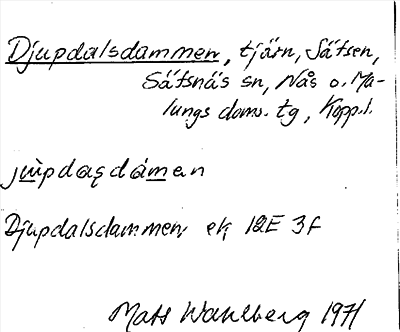 Djupdalsdammen, tjärn, Sätsen,
Sätsnäs sn, Nås o. Ma-
lungs doms. tg, Kopp. l.
Djupdalsdammen ek 12E 3f
Mats Wahlberg 1971